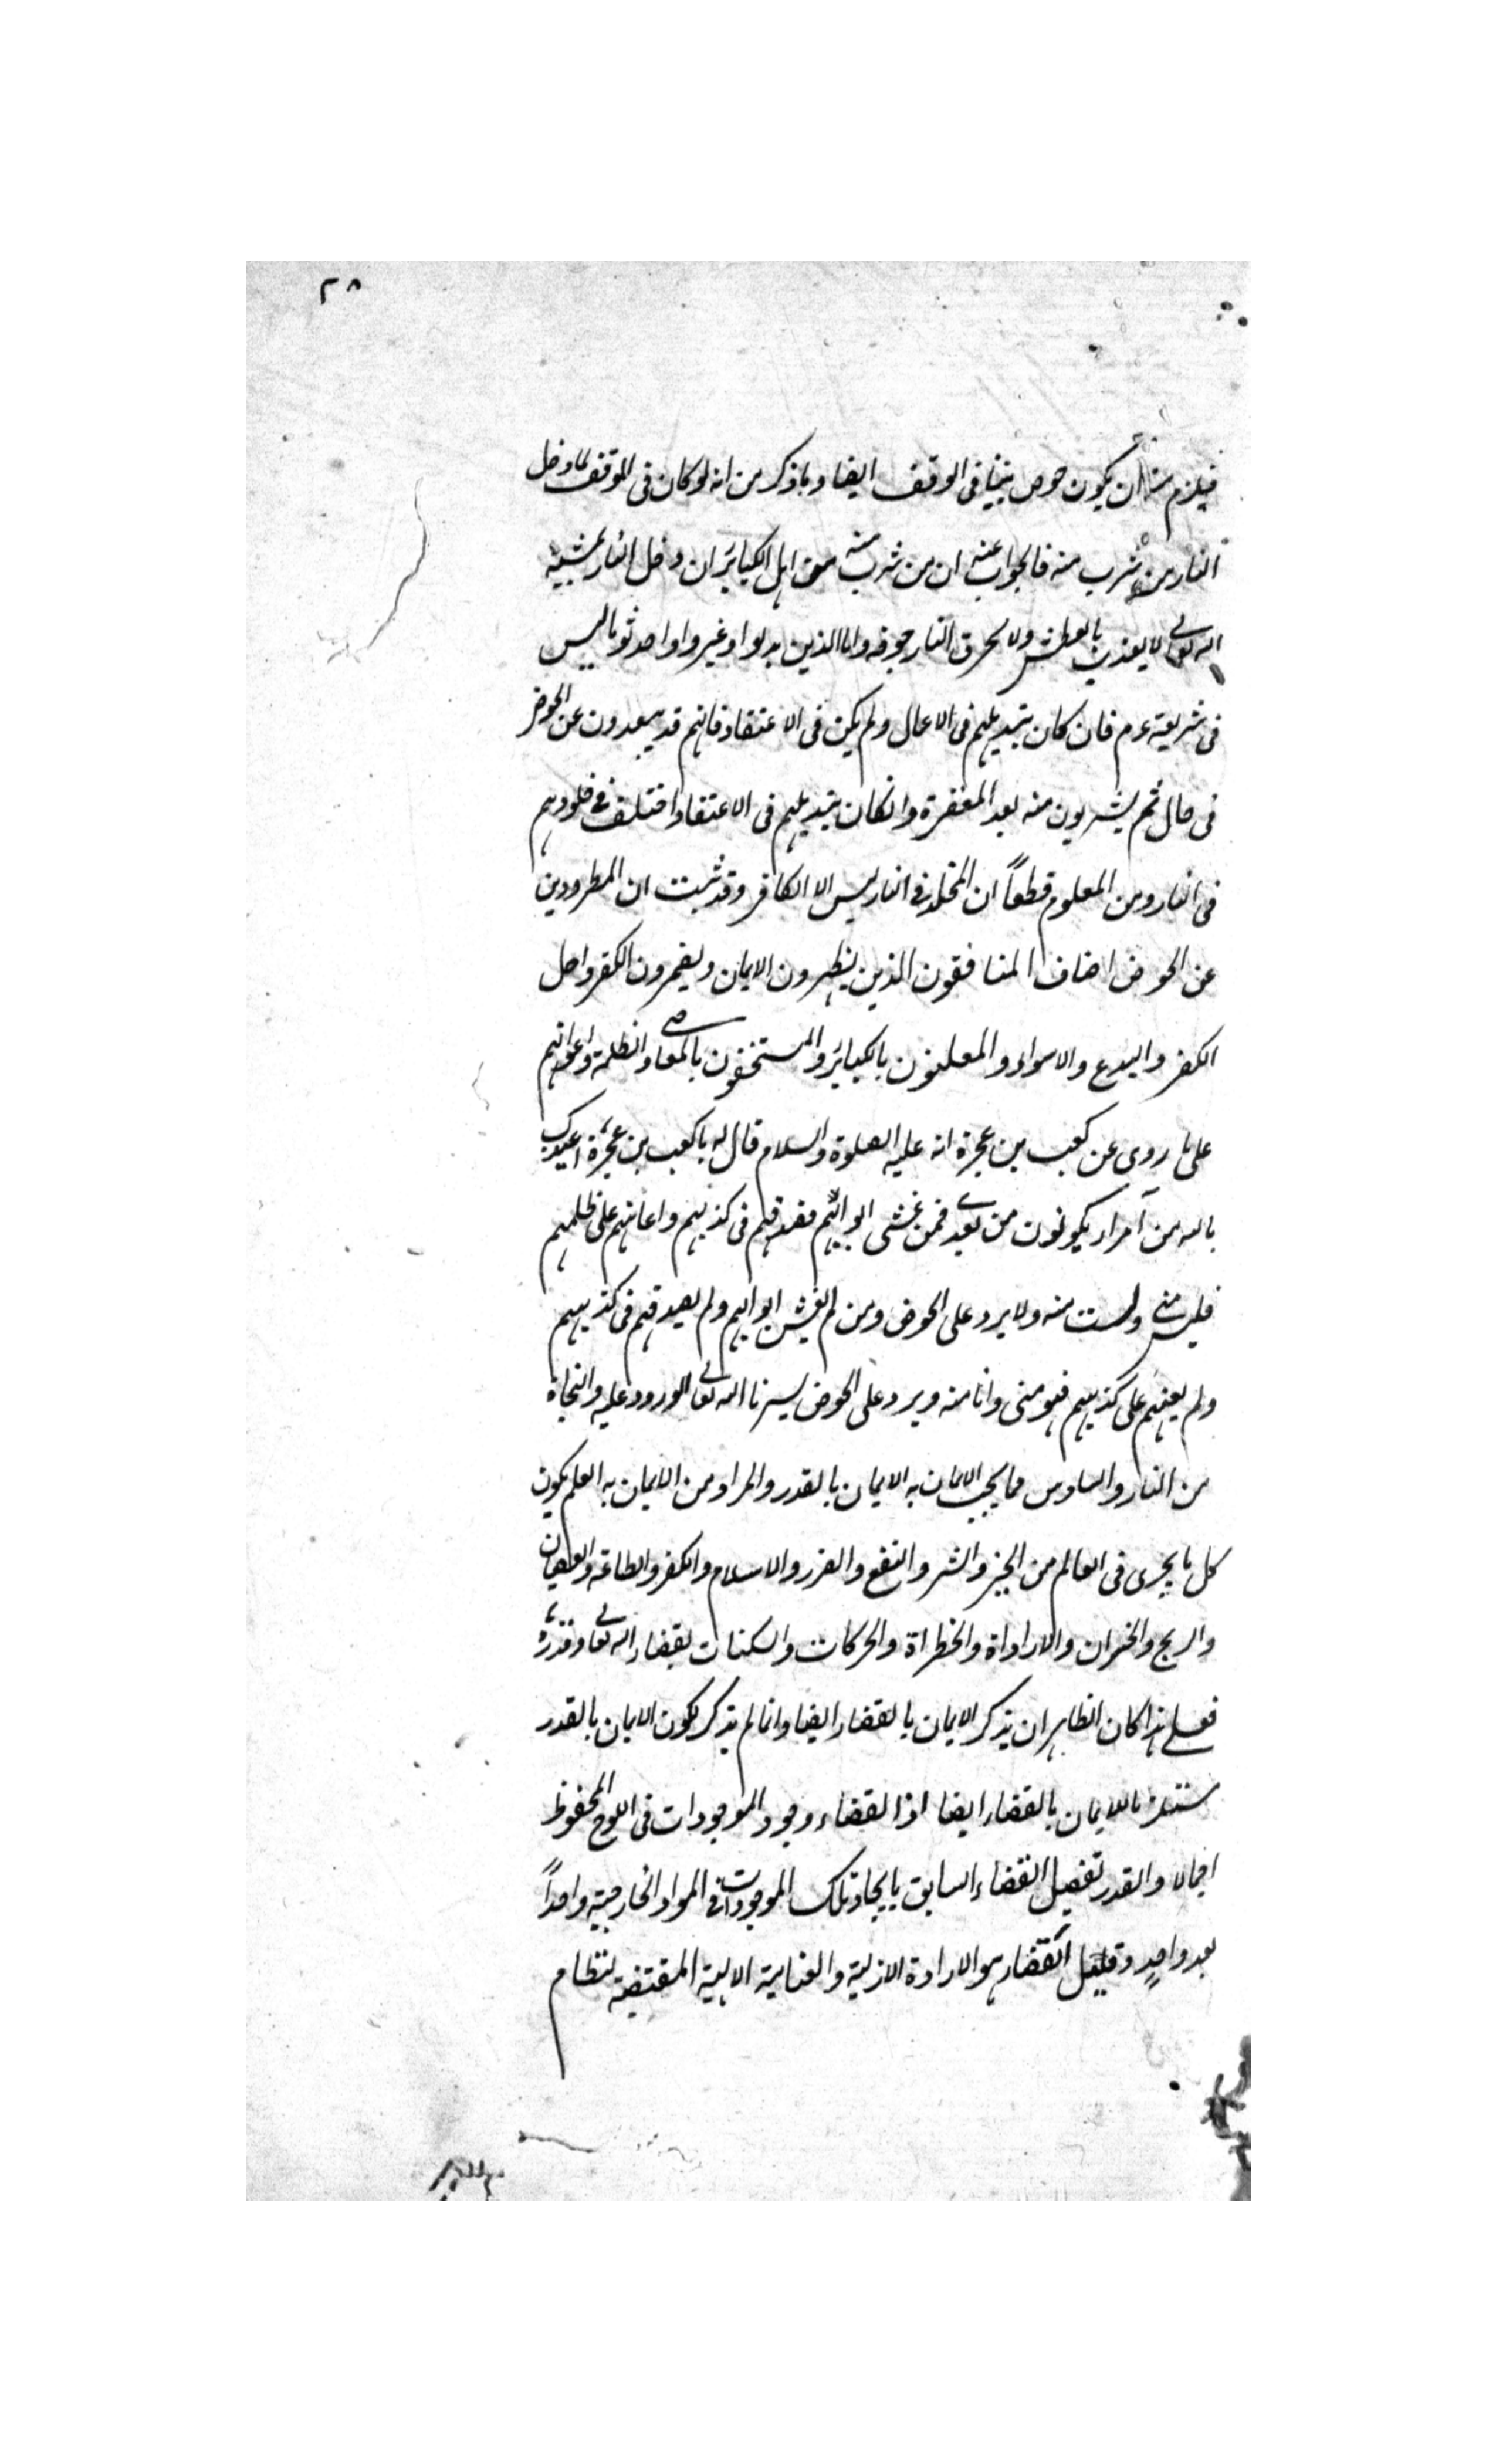 ٢٨
فيلزم منه ان يكون حوض نبينا فى الوقف ايضا وما ذكر من انه لو كان فى الموقف لما دخل
النار من شرب منه فالجواب عنه ان من شرب منه من اهل الكبائر ان دخل النار بمشيئة
الله تعالى لا يعذب بالعطش ولا يحرق النار جوفه واما الذين بدلوا وغيروا واحدثوا ما ليس
فى شريعته عم فان كان تبديلهم فى الاعمال ولم يكن فى الاعتقاد فانهم قد يبعدون عن الحوض
فى حال ثم يشربون منه بعد المغفرة وانكان تبديلهم فى الاعتقاد اختلف فى خلودهم
فى النار ومن المعلوم قطعاً ان المخلد فى النار ليس الا الكافر وقد ثبت ان المطرودين
عن الحوض اصناف المنافقون الذين يظهرون الايمان ويضمرون الكفر واهل
الكفر والبدع والاهواء والمعلنون بالكبائر والمستخفون بالمعاصى والظلمة واعوانهم
على ما روى عن كعب بن عجرة انه عليه الصلوة والسلام قال له يا كعب بن عجرة اعيذك
بالله من امراء يكونون من بعدى فمن غشى ابوابهم فصدقهم فى كذبهم واعانهم على ظلمهم
فليس منى ولست منه ولا يرد على الحوض ومن لم يغش ابوابهم ولم يصدقهم فى كذبهم
ولم يعنهم على كذبهم فهو منى وانا منه ويرد على الحوض يسرنا الله تعالى الورود عليه والنجاة
من النار والسادس مما يجب الايمان به الايمان بالقدر والمراد من الايمان به العلم بكون
كل ما يجرى فى العالم من الخير والشر والنفع والضرر والاسلام والكفر والطاعة والعصيان
والربح والخسران والاراداة والخطراة والحركات والسكنات بقضاء الله تعالى وقدره
فعلى هذا كان الظاهر ان يذكر الايمان بالقضاء ايضا وانما لم يذكر لكون الايمان بالقدر
مستلزما للايمان بالقضاء ايضا اذ القضاء وجود الموجودات فى اللوح المحفوظ
اجمالا والقدر تفصيل القضاء السابق بايجاد تلك الموجودات فى المواد الخارجية واحداً
بعد واحدٍ وقيل القضاء هو الارادة الازلية والعناية الالهية المقتضية لنظام